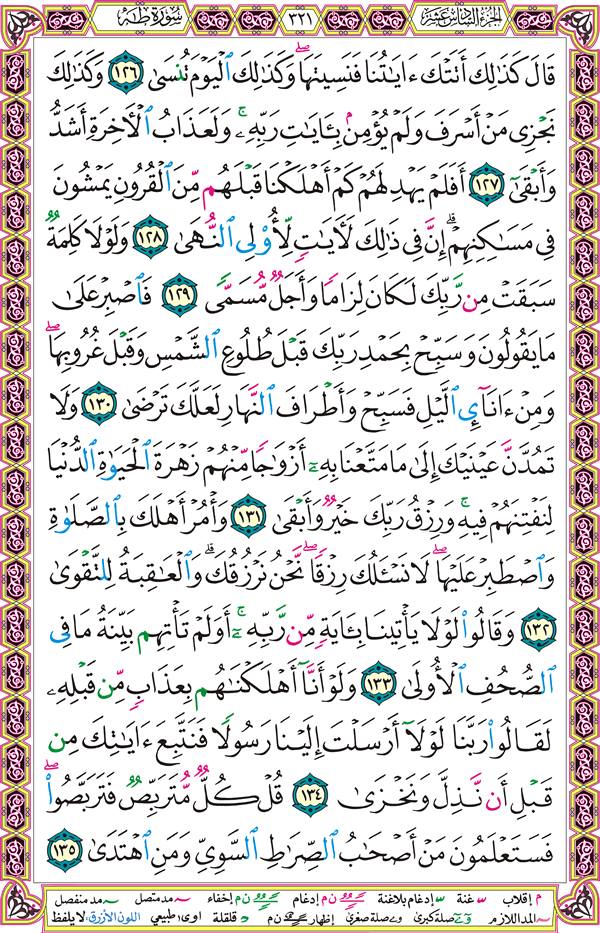 الجزء السادس عشر ٣٢١ سورة طه
قَالَ كَذَٰلِكَ أَتَتْكَ ءَايَٰتُنَا فَنَسِيتَهَا ۖ وَكَذَٰلِكَ ٱلْيَوْمَ تُنسَىٰ ١٢٦ وَكَذَٰلِكَ
نَجْزِى مَنْ أَسْرَفَ وَلَمْ يُؤْمِنۢ بِـَٔايَٰتِ رَبِّهِۦ ۚ وَلَعَذَابُ ٱلْءَاخِرَةِ أَشَدُّ
وَأَبْقَىٰٓ ١٢٧ أَفَلَمْ يَهْدِ لَهُمْ كَمْ أَهْلَكْنَا قَبْلَهُم مِّنَ ٱلْقُرُونِ يَمْشُونَ
فِى مَسَٰكِنِهِمْ ۗ إِنَّ فِى ذَٰلِكَ لَءَايَٰتٍ لِّأُو۟لِى ٱلنُّهَىٰ ١٢٨ وَلَوْلَا كَلِمَةٌ
سَبَقَتْ مِن رَّبِّكَ لَكَانَ لِزَامًا وَأَجَلٌ مُّسَمًّى ١٢٩ فَٱصْبِرْ عَلَىٰ
مَا يَقُولُونَ وَسَبِّحْ بِحَمْدِ رَبِّكَ قَبْلَ طُلُوعِ ٱلشَّمْسِ وَقَبْلَ غُرُوبِهَا ۖ
وَمِنْ ءَانَآئِ ٱلَّيْلِ فَسَبِّحْ وَأَطْرَافَ ٱلنَّهَارِ لَعَلَّكَ تَرْضَىٰ ١٣٠ وَلَا
تَمُدَّنَّ عَيْنَيْكَ إِلَىٰ مَا مَتَّعْنَا بِهِۦٓ أَزْوَٰجًا مِّنْهُمْ زَهْرَةَ ٱلْحَيَوٰةِ ٱلدُّنْيَا
لِنَفْتِنَهُمْ فِيهِ ۚ وَرِزْقُ رَبِّكَ خَيْرٌ وَأَبْقَىٰ ١٣١ وَأْمُرْ أَهْلَكَ بِٱلصَّلَوٰةِ
وَٱصْطَبِرْ عَلَيْهَا ۖ لَا نَسْـَٔلُكَ رِزْقًا ۖ نَّحْنُ نَرْزُقُكَ ۗ وَٱلْعَٰقِبَةُ لِلتَّقْوَىٰ
١٣٢ وَقَالُوا۟ لَوْلَا يَأْتِينَا بِـَٔايَةٍ مِّن رَّبِّهِۦٓ ۚ أَوَلَمْ تَأْتِهِم بَيِّنَةُ مَا فِى
ٱلصُّحُفِ ٱلْأُولَىٰ ١٣٣ وَلَوْ أَنَّآ أَهْلَكْنَٰهُم بِعَذَابٍ مِّن قَبْلِهِۦ
لَقَالُوا۟ رَبَّنَا لَوْلَآ أَرْسَلْتَ إِلَيْنَا رَسُولًا فَنَتَّبِعَ ءَايَٰتِكَ مِن
قَبْلِ أَن نَّذِلَّ وَنَخْزَىٰ ١٣٤ قُلْ كُلٌّ مُّتَرَبِّصٌ فَتَرَبَّصُوا۟ ۖ
فَسَتَعْلَمُونَ مَنْ أَصْحَٰبُ ٱلصِّرَٰطِ ٱلسَّوِىِّ وَمَنِ ٱهْتَدَىٰ ١٣٥
م إقلاب غنة إدغام بلاغنة ن م إدغام ن م إخفاء مد متصل مد منفصل
المد اللازم صلة كبرى صلة صغرى إظهار ن م قلقلة اوى: طبيعي اللون الأزرق: لا يلفظ